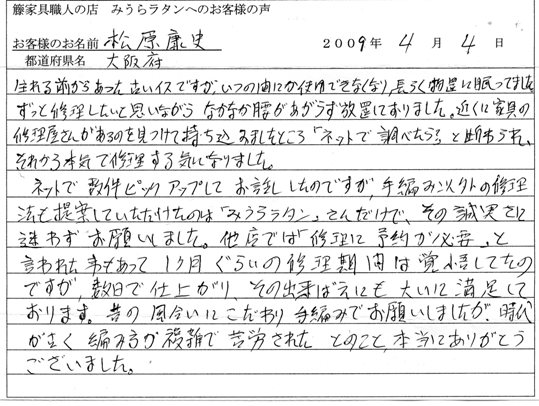 籐家具職人の店 みうらラタンへのお客様の声
お客様のお名前 松原康史 2009年 4月 4日
都道府県名 大阪府
生れる前からあった古いイスですがいつの間にか使用できなくなり、長らく物置に眠ってました
ずっと修理したいと思いながら なかなか腰があがらず放置しておりました。近くに家具の
修理屋さんがあるのを見つけて持ち込みましたところ「ネットで調べたら?」と断わられ、
それから本気で修理する気になりました。
ネットで数件ピックアップして お話ししたのですが、手編み以外の修理
法も提案していただけたのは「みうらラタン」さんだけで、その誠実さに
迷わずお願いしました。他店では「修理に予約が必要」と
言われた事もあって 1ヶ月ぐらいの修理期間は覚悟してたの
ですが、数日で仕上がり、その出来ばえにも大いに満足して
おります。昔の風合いにこだわり手編みでお願いしましたが、時代
が古く 編み方が複雑で苦労された とのこと、本当にありがとう
ございました。